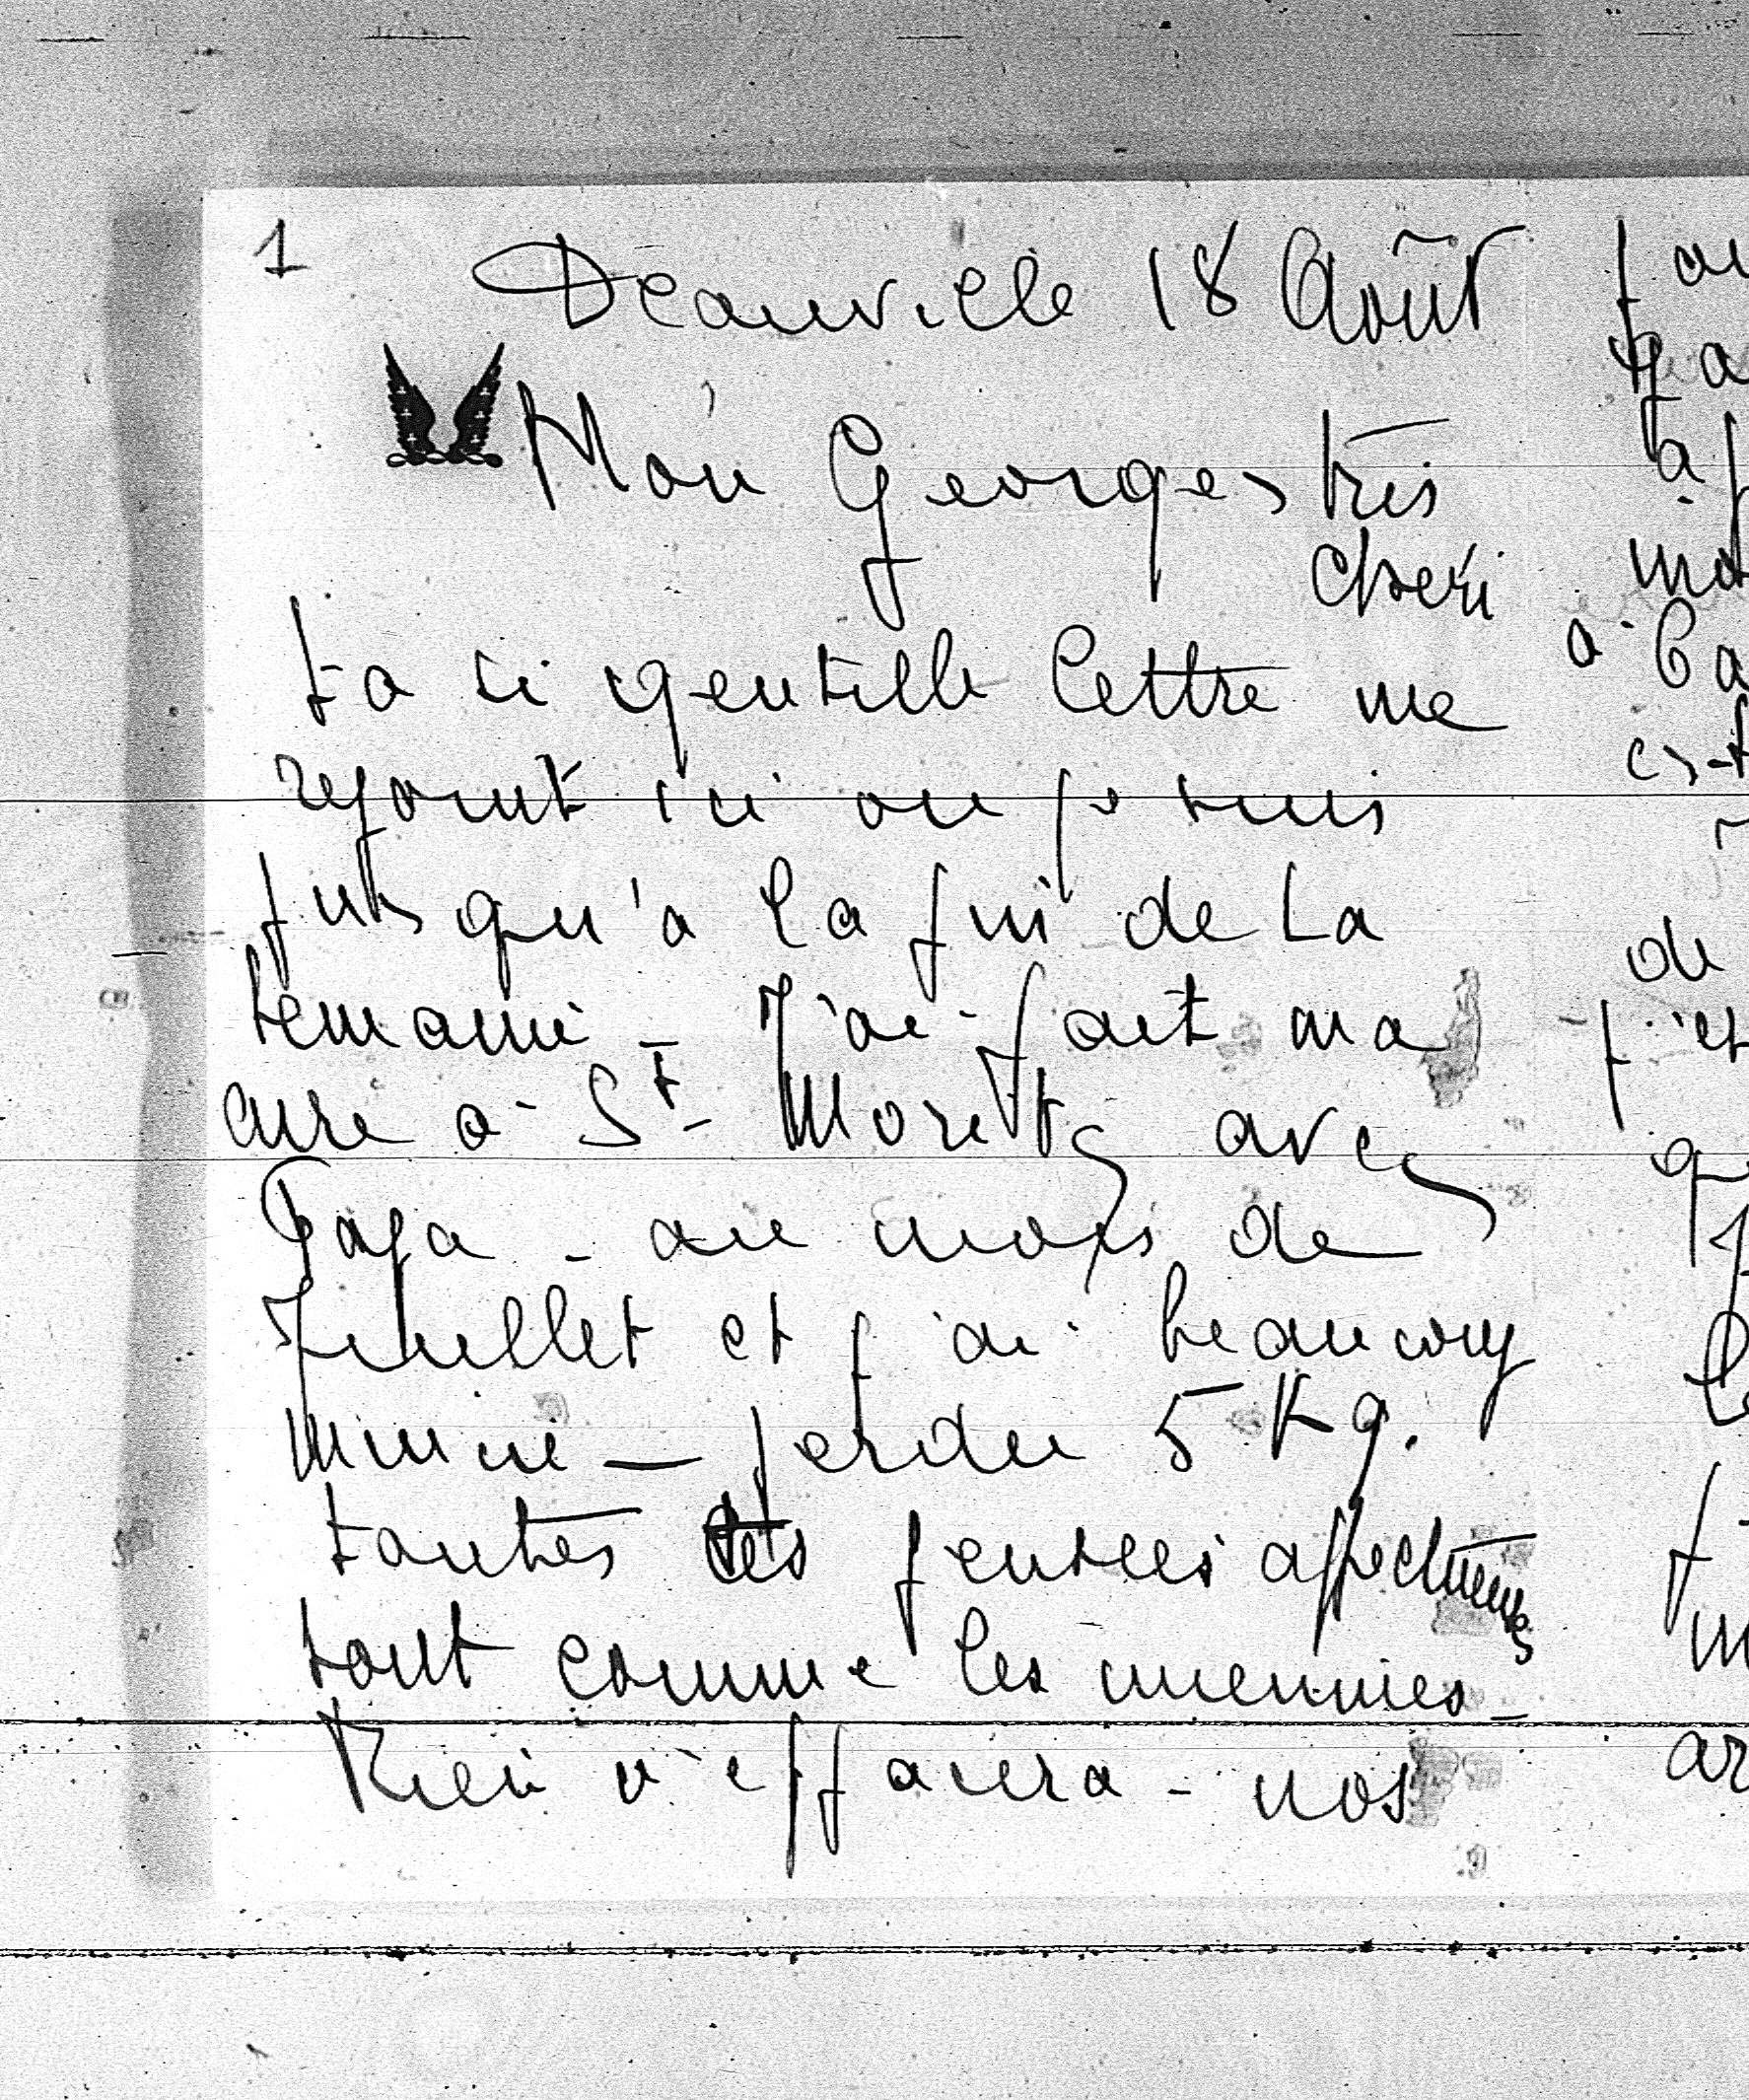 1
Deauville 18 Août
Mon Georges très
chéri
ta si gentille lettre me
rejoint ici où je suis
jusqu'à la fin de la
semaine – J'ai fait ma
cure à St- Moritz avec
Papa – au mois de
Juillet et j'ai beaucoup
minci — perdu 5 Kg.
toutes tes pensées affectueuses
tout comme les miennes –
Rien n'effacera – nos
de